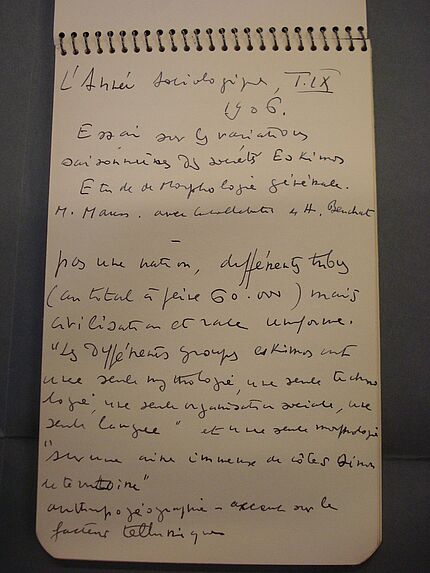 L'Année Sociologique, T.IX
1906.
Essai sur les variations
saisonnières des sociétés Eskimos
Etude de Morphologie générale.
M. Mauss. avec la collaboration H. Beuchat
pas une nation, différents tribus
(au total à peine 60.000) mais
civilisation et race uniforme.
"Les différents groupes eskimos ont
une seule mythologie, une seule techno
logie, une seule organisation sociale, une
seule langue" et une seule morphologie
"sur une aire immense de côtes sinon
de territoire"
anthropogéographie - accent sur le
facteur tellurique